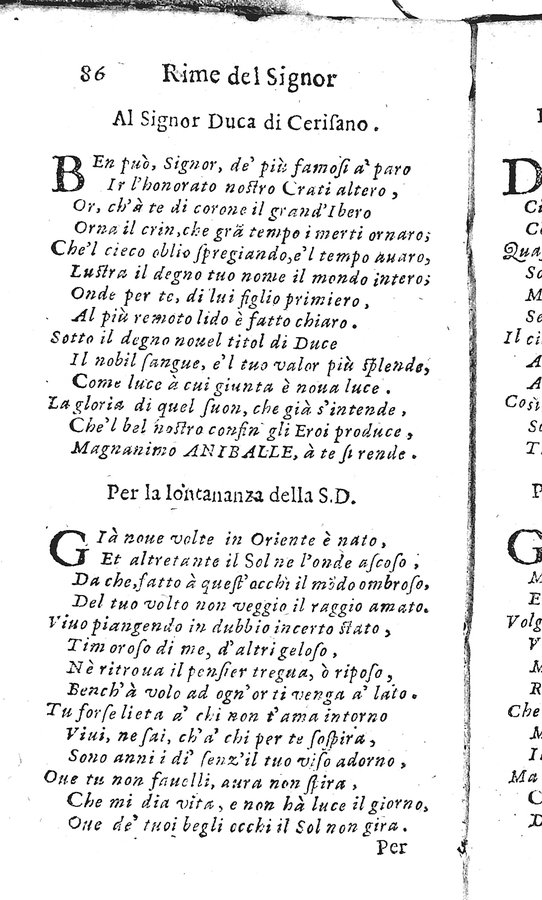 86 Rime del Signor
Al Signor Duca di Ceriſano.
BEn può, Signor, de' più famoſi a' paro
Ir l'honorato noſtro Crati altero,
Or, ch'à te di corone il grand'Ibero
Orna il crin, che grã tempo i merti ornaro;
Che'l cieco oblio ſpregiando, e'l tempo auaro,
Luſtra il degno tuo nome il mondo intero;
Onde per te, di lui figlio primiero,
Al più remoto lido è fatto chiaro.
Sotto il degno nouel titol di Duce
Il nobil ſangue, e'l tuo valor più ſplende,
Come luce à cui giunta è noua luce.
La gloria di quel ſuon, che già s'intende,
Che'l bel noſtro confin gli Eroi produce,
Magnanimo ANIBALLE, à te ſi rende.
Per la lontananza della S.D.
GIà noue volte in Oriente è nato,
Et altretante il Sol ne l'onde aſcoſo,
Da che, fatto à queſt'occhi il mõdo ombroſo,
Del tuo volto non veggio il raggio amato.
Viuo piangendo in dubbio incerto ſtato,
Timoroſo di me, d'altri geloſo,
Nè ritroua il penſier tregua, ò ripoſo,
Bench'à volo ad ogn'or ti venga a' lato.
Tu forſe lieta a' chi non t'ama intorno
Viui, ne ſai, ch'a' chi per te ſoſpira,
Sono anni i dì ſenz'il tuo viſo adorno,
Oue tu non fauelli, aura non ſpira,
Che mi dia vita, e non hà luce il giorno,
Oue de' tuoi begli occhi il Sol non gira.
Per
D
Ci
Qua
So
M
Se
Il ci
A
A
Così
T
P
G
M
E
Volg
V
M
R
Che
M
Il
Ma
C
D